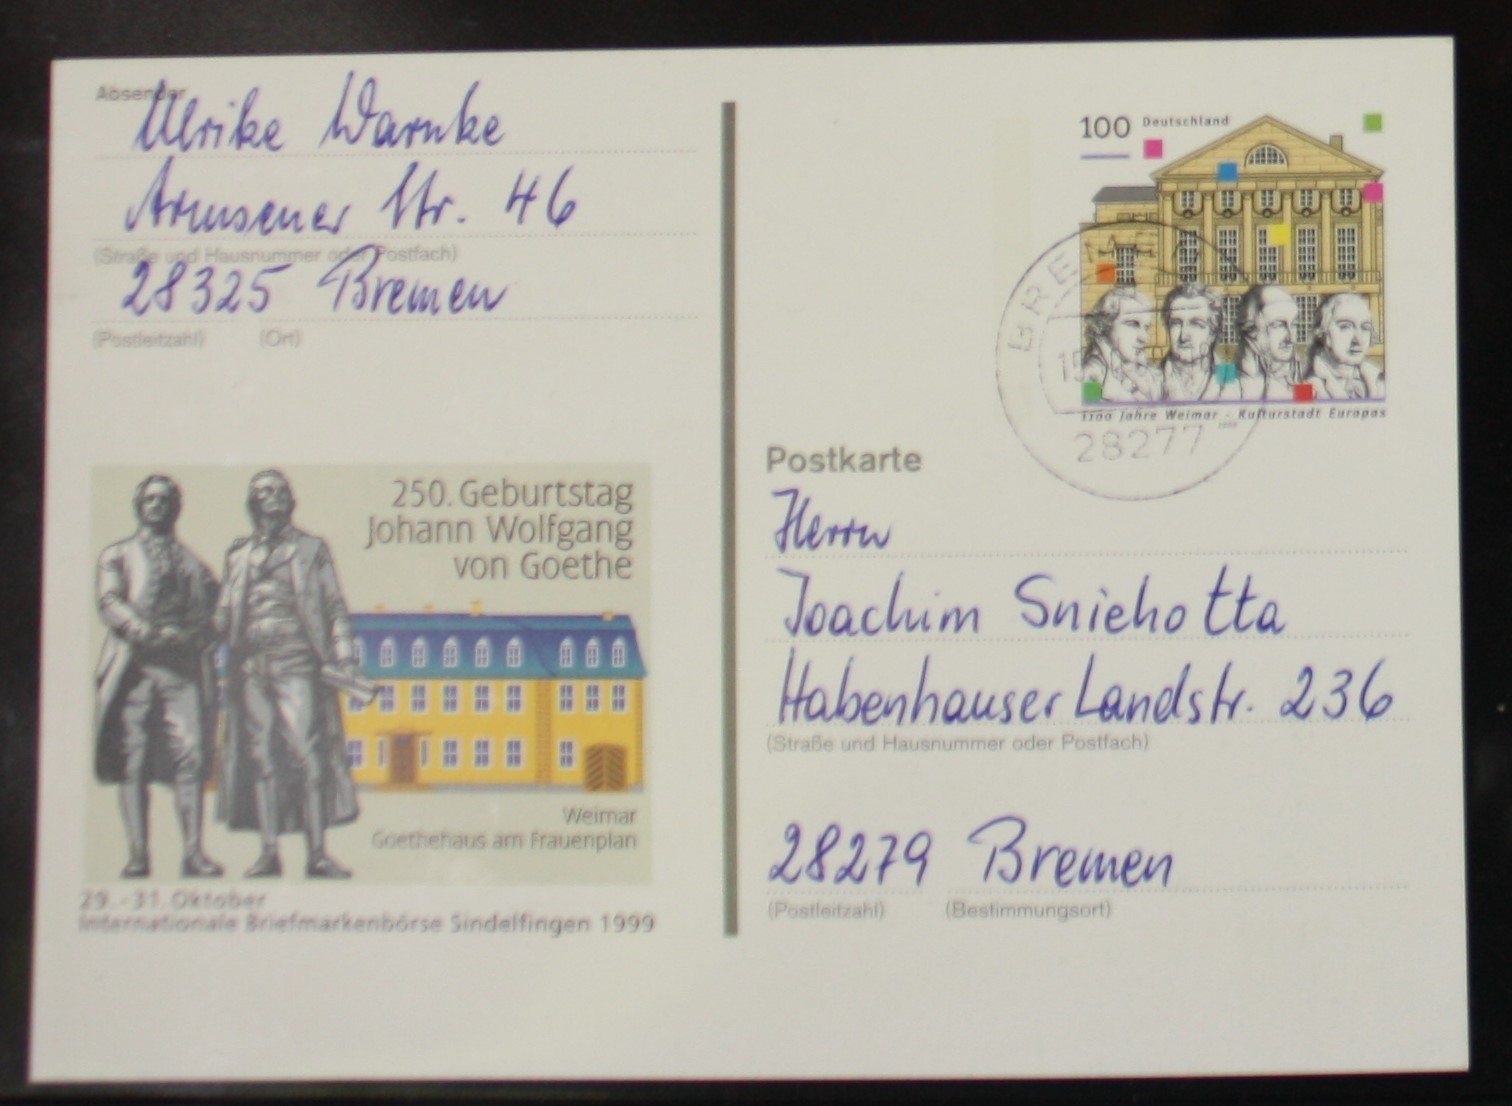 Absender
Ulrike Warnke
Armsener Str. 46
(Straße und Hausnummer oder Postfach)
28325 Bremen
(Postleitzahl) (Ort)
250. Geburtstag
Johann Wolfgang
von Goethe
Weimar
Goethehaus am Frauenplan
29.-31. Oktober
Internationale Briefmarkenbörse Sindelfingen 1999
100 Deutschland
1100 Jahre Weimar - Kulturstadt Europas
1999
28277
Postkarte
Herrn
Joachim Sniehotta
Habenhauser Landstr. 236
(Straße und Hausnummer oder Postfach)
28279 Bremen
(Postleitzahl) (Bestimmungsort)